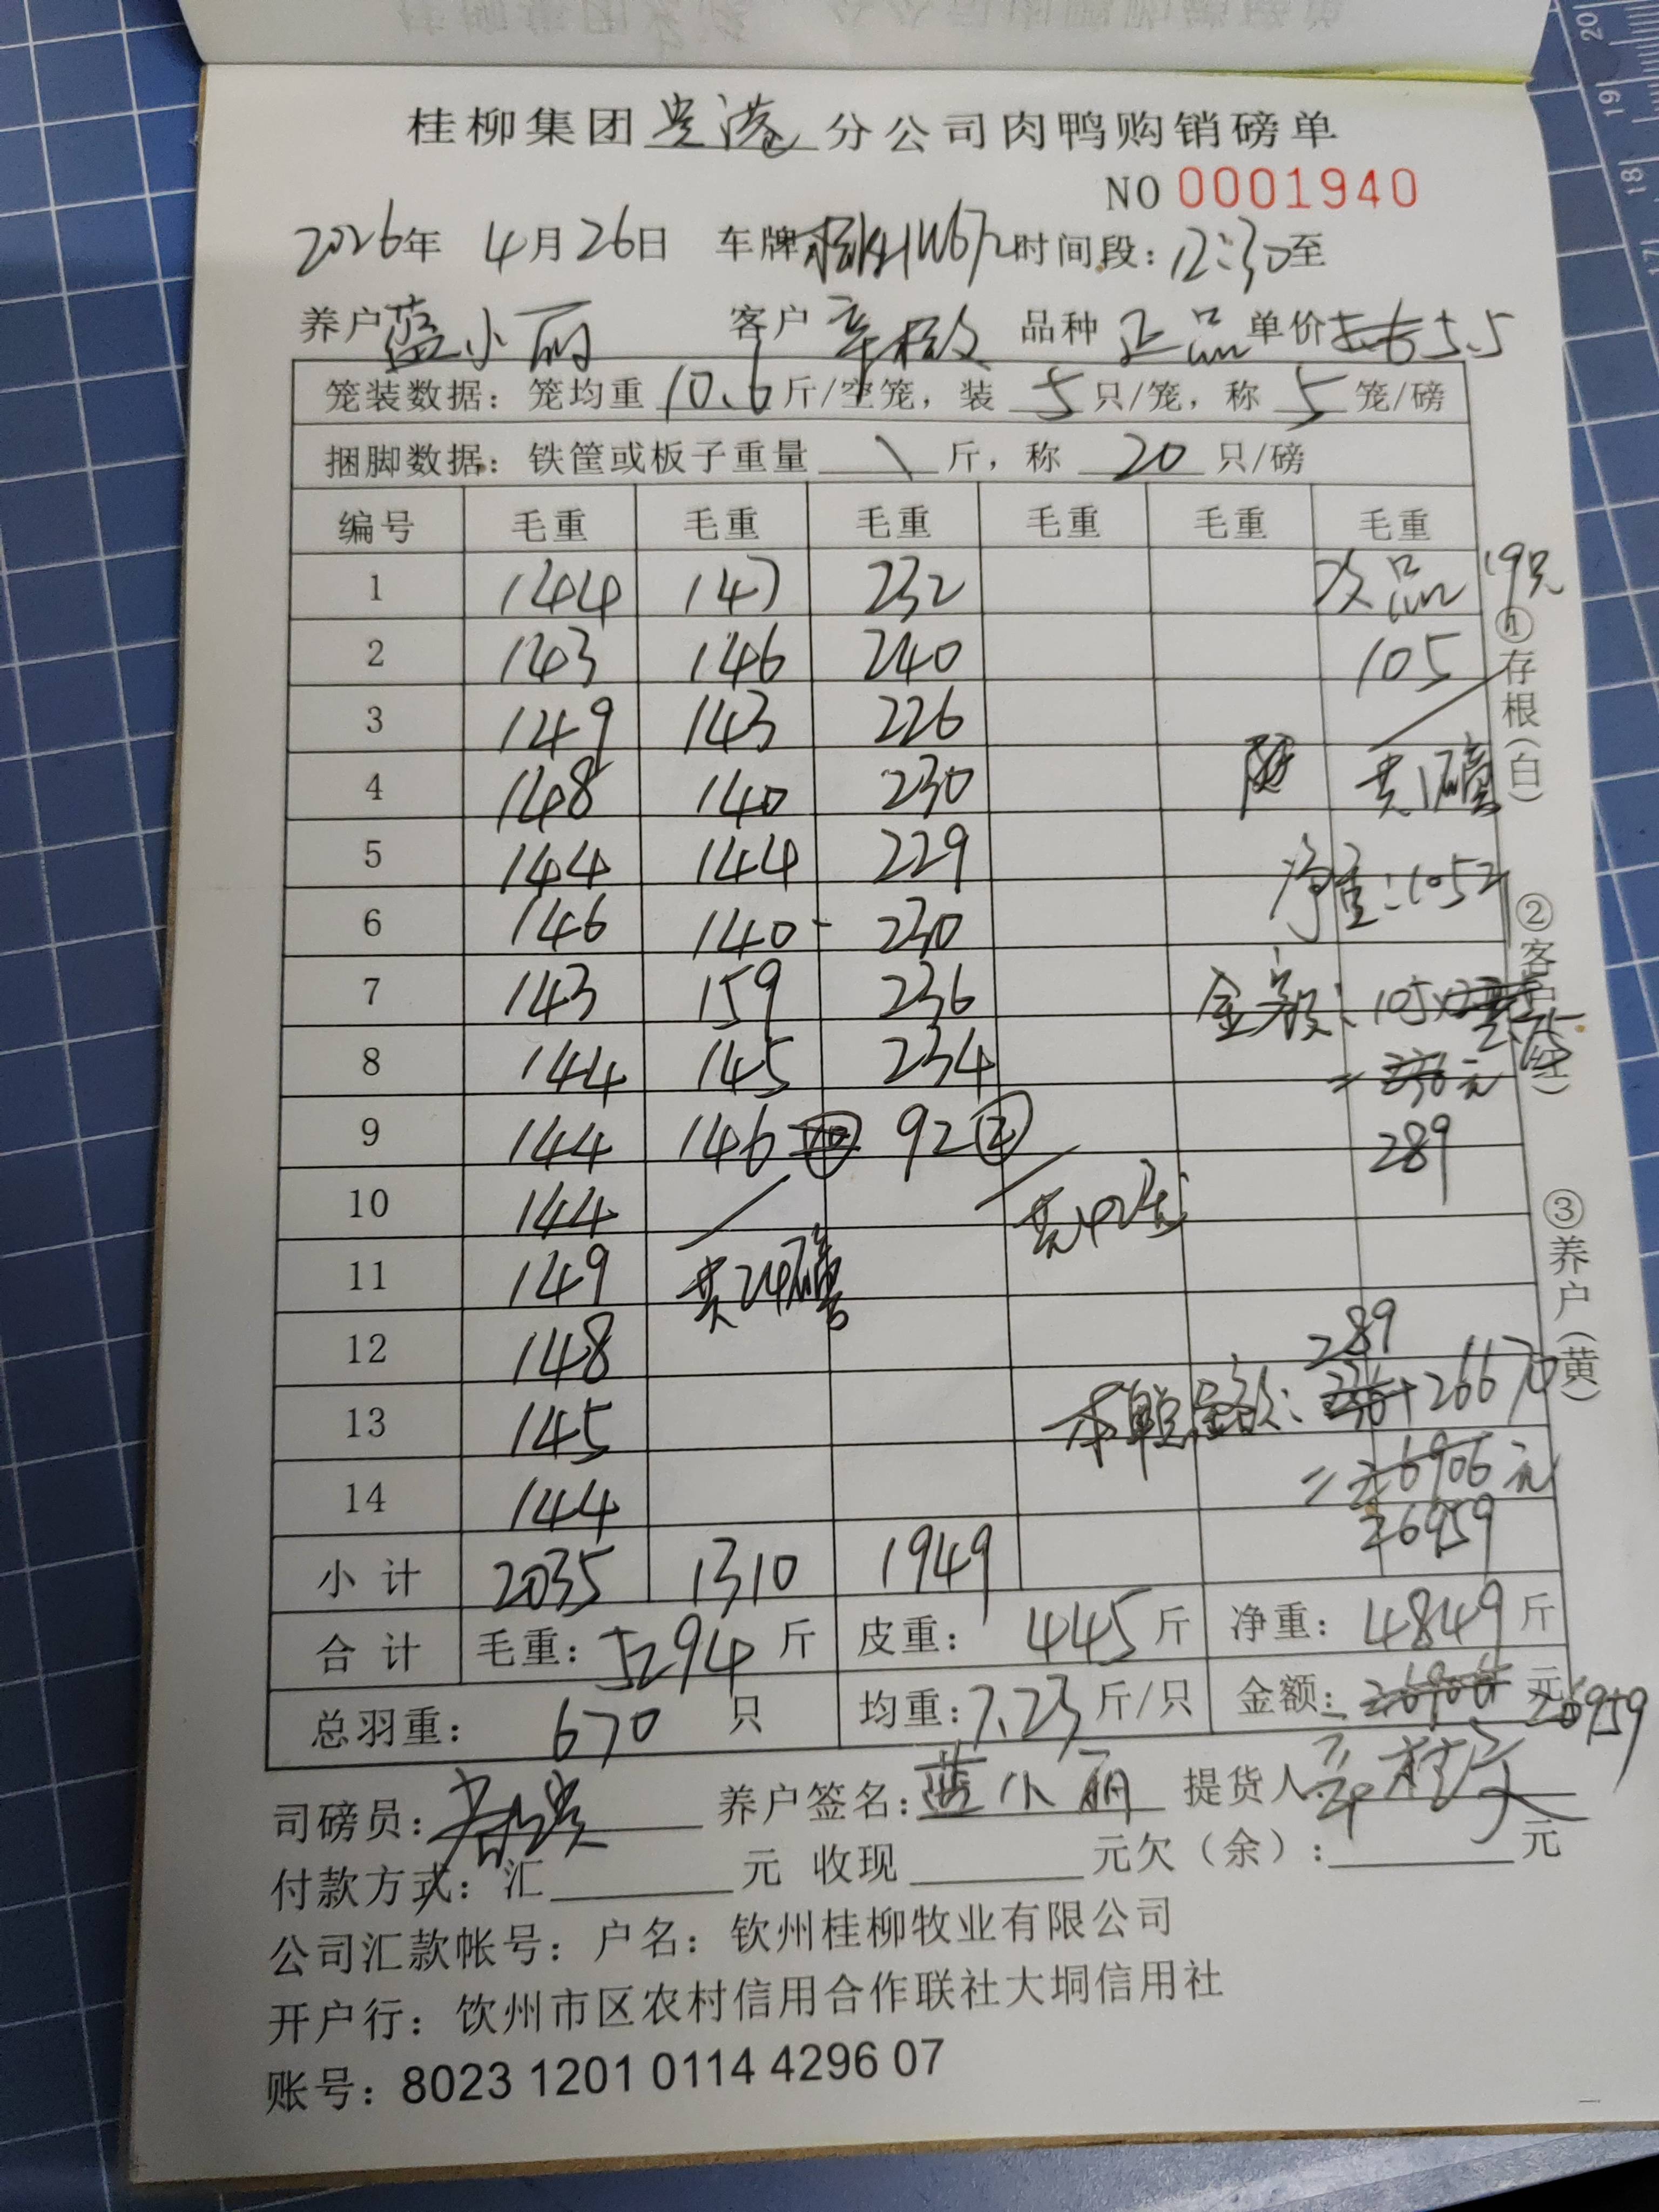 桂柳集团贵港分公司肉鸭购销磅单
NO 0001940
2026年 4月26日 车牌 时间段：12:30至
养户 蓝小丽 客户 品种 正品 单价 5.5
笼装数据：笼均重 10.6 斤/空笼，装 5 只/笼，称 5 笼/磅
捆脚数据：铁筐或板子重量 \ 斤，称 20 只/磅
编号 毛重 毛重 毛重 毛重 毛重 毛重
1 144 147 232 次品 19只
2 143 146 240 105
3 149 143 226
4 148 140 230 共1磅
5 144 144 229
6 146 140 230 净重：105斤
7 143 159 236 金额：105×2.75
8 144 145 234 = 236元
9 144 146 92② 289
10 144 共42笼
11 149 共24磅
12 148 289
13 145 本单总金额：236+26670
14 144 =26906元
26959
小计 2035 1310 1949
合计 毛重：5294斤 皮重：445斤 净重：4849斤
总羽重：670只 均重：7.23斤/只 金额：26906元 26959
司磅员： 养户签名：蓝小丽 提货人
付款方式：汇 元 收现 元欠（余）： 元
公司汇款帐号：户名：钦州桂柳牧业有限公司
开户行：饮州市区农村信用合作联社大垌信用社
账号：8023 1201 0114 4296 07
①存根（白）
②客户（红）
③养户（黄）
20
19
18
17